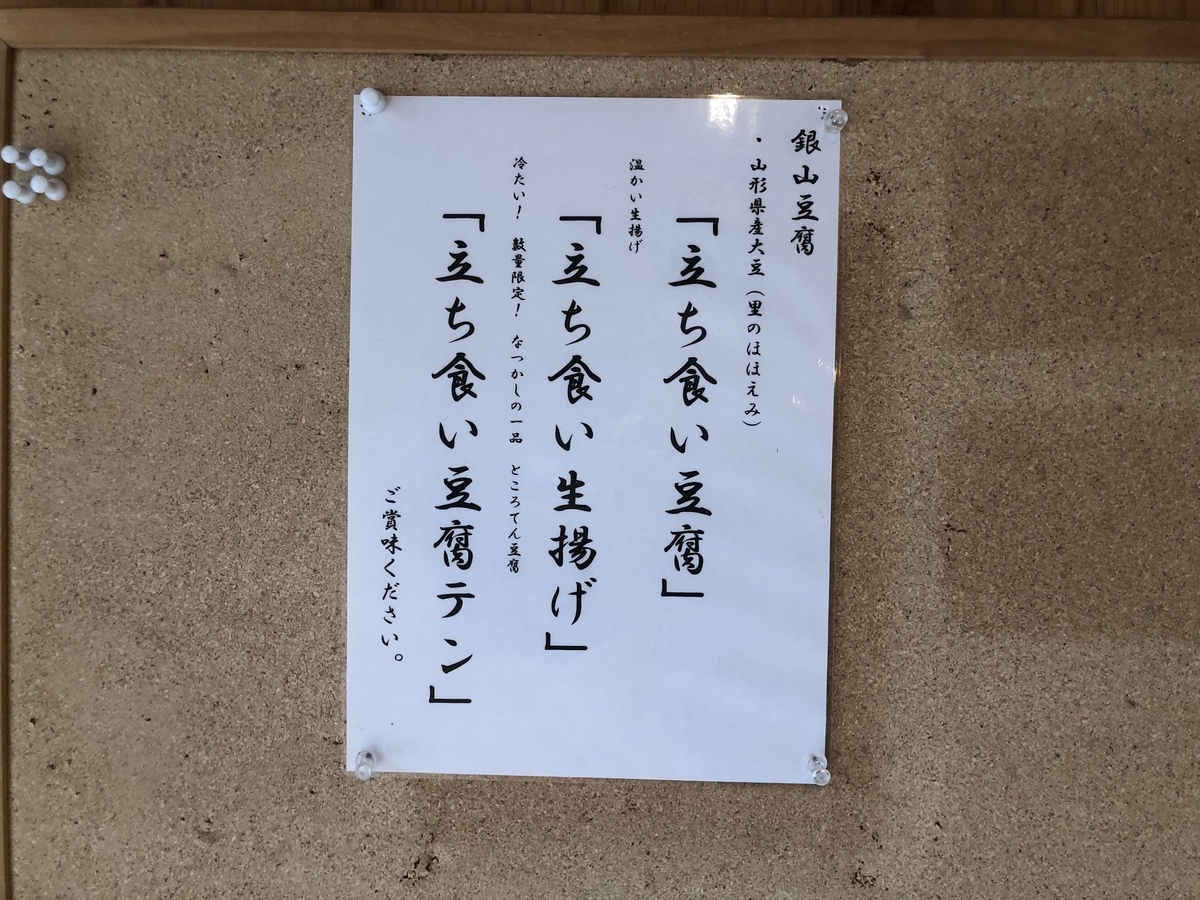 銀山豆腐
・山形県産大豆（里のほほえみ）
「立ち食い豆腐」
温かい生揚げ
「立ち食い生揚げ」
冷たい！ 数量限定！ なつかしの一品 ところてん豆腐
「立ち食い豆腐テン」
ご賞味ください。